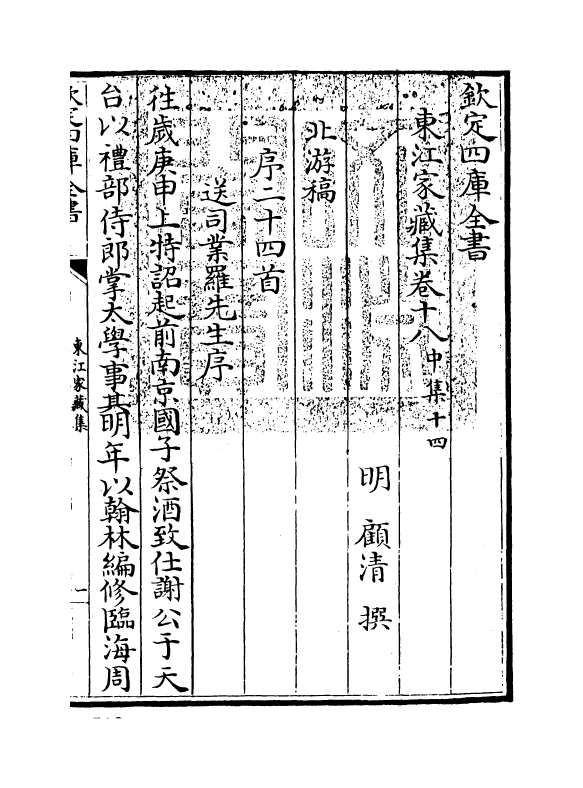 欽定四庫全書
東江家藏集卷十八 中集十四
明 顧清 撰
北游稿
序二十四首
送司業羅先生序
往歲庚申上特詔起前南京國子祭酒致仕謝公于天
台以禮部侍郎掌太學事其明年以翰林編修臨海周
欽定四庫全書
東江家藏集
一